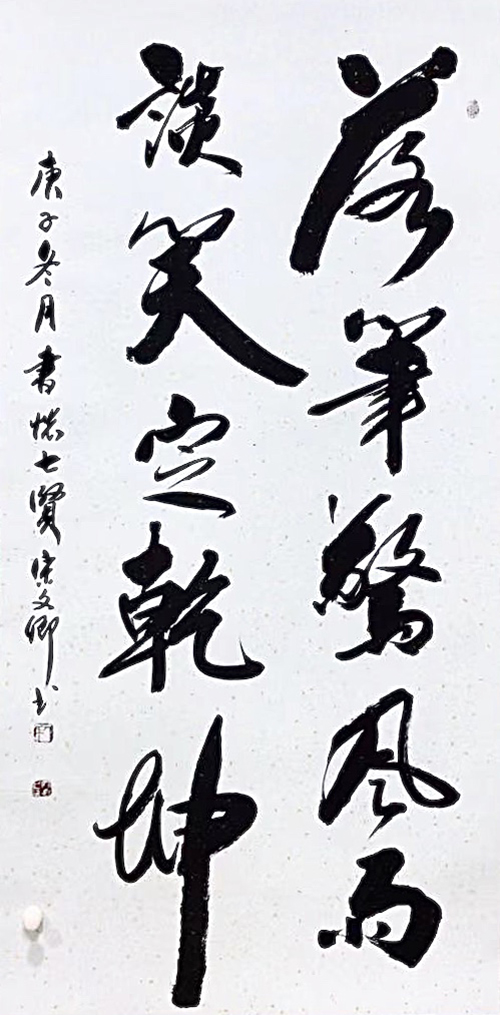 落筆驚風雨
談笑定乾坤
庚子冬月書懷七賢宋文卿書